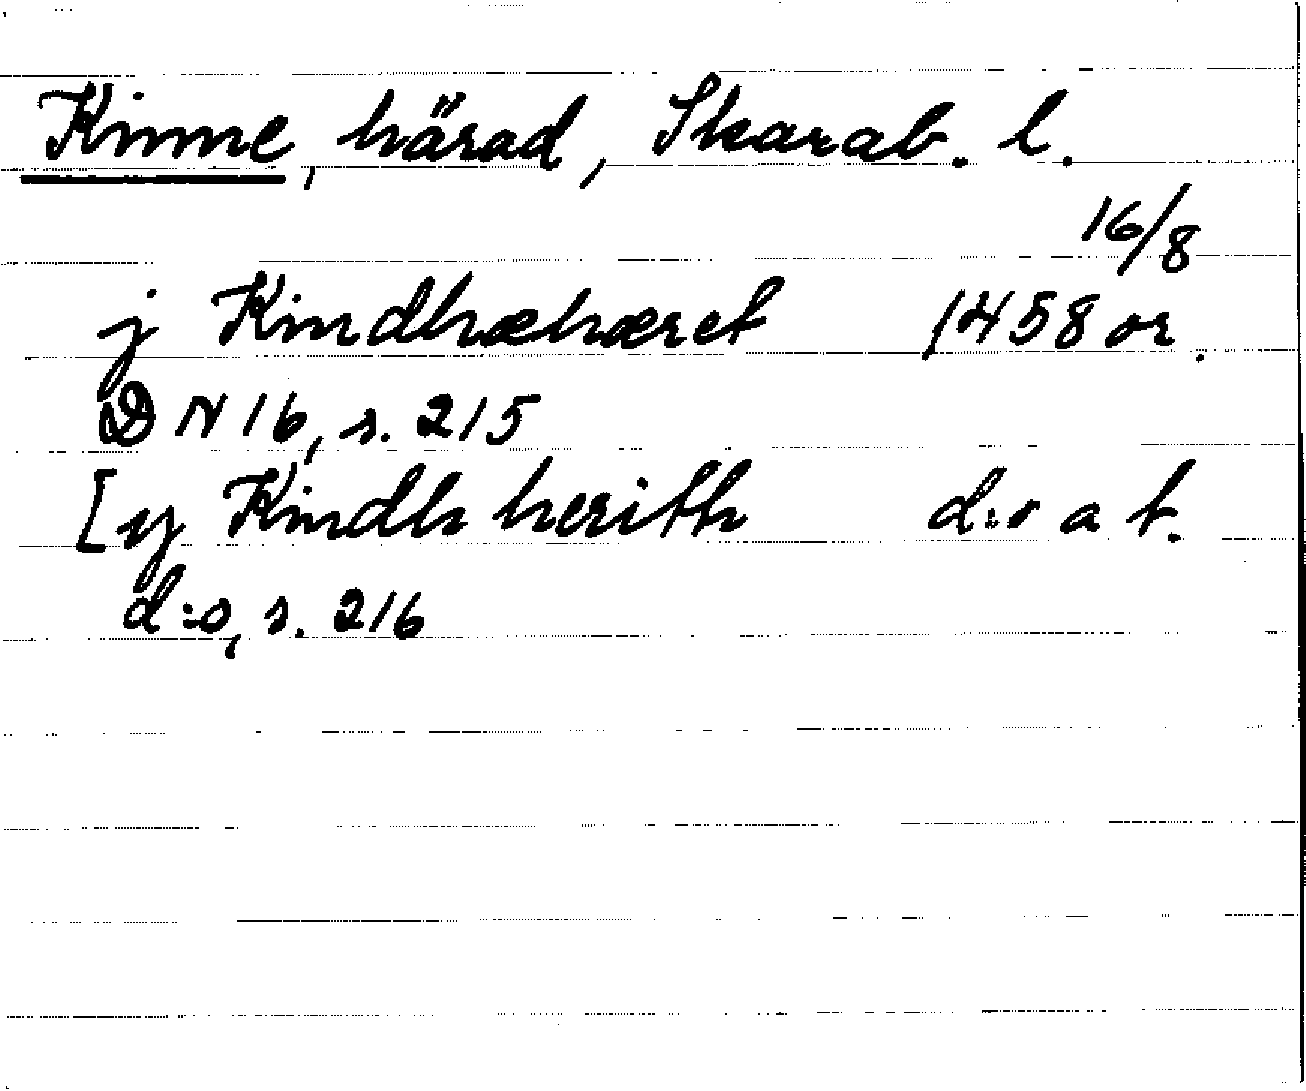 Kinne, härad, Skarab. l.
16/8
j Kindhæhæret 1458 or.
DN 16, s. 215
[y Kindh herith d:o a f.
d:o, s. 216